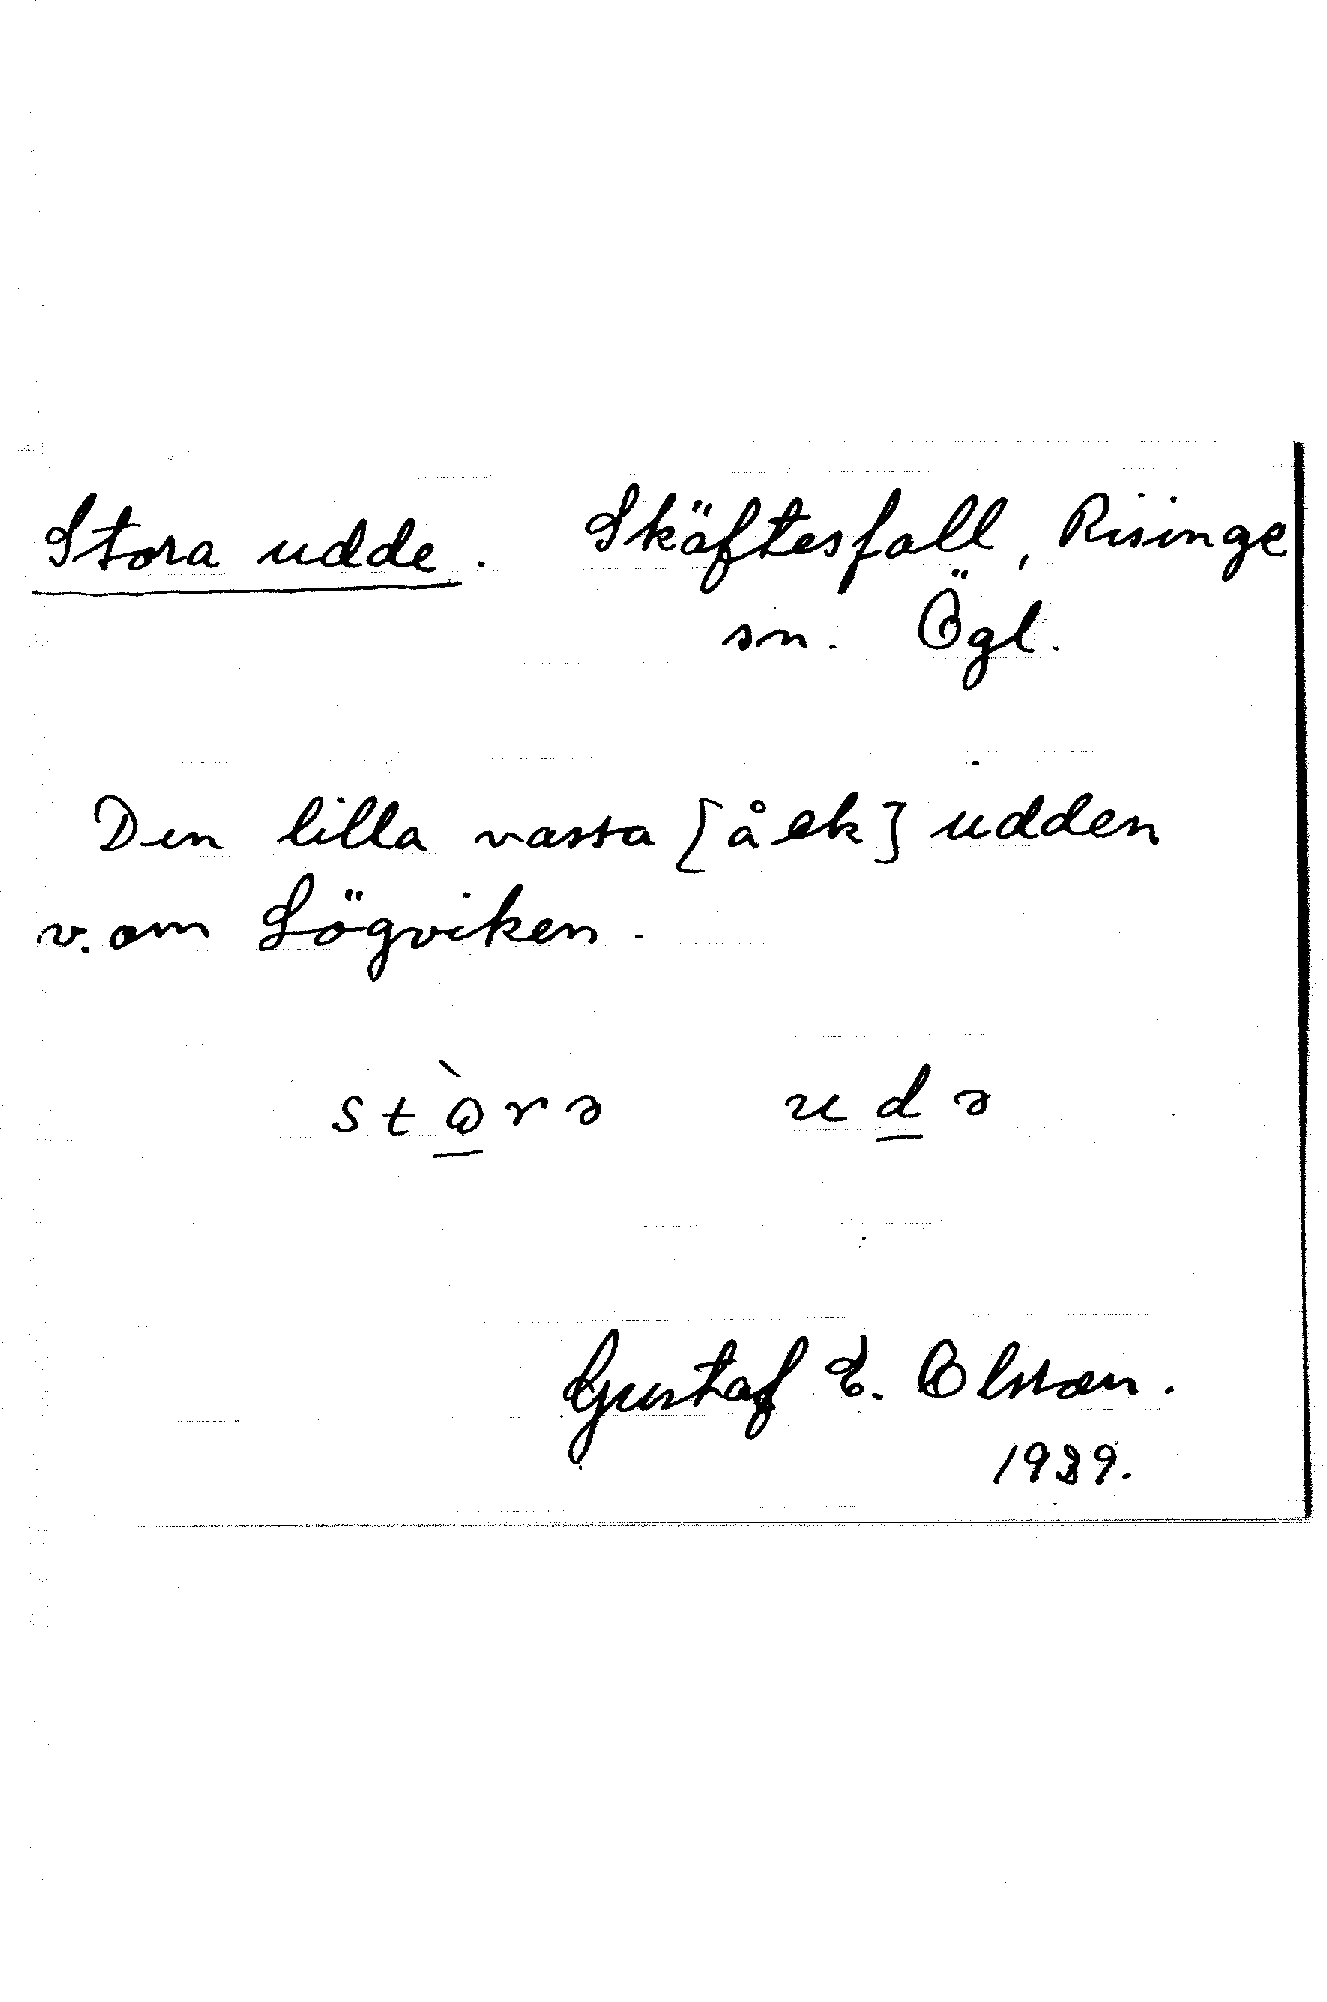 Stora udde. Skäftesfall, Risinge
sn. Ögl.
Den lilla vassa [å ek] udden
v. om Sögviken.
stò̲rə ud̲ə
Gustaf E. Olsson.
1939.